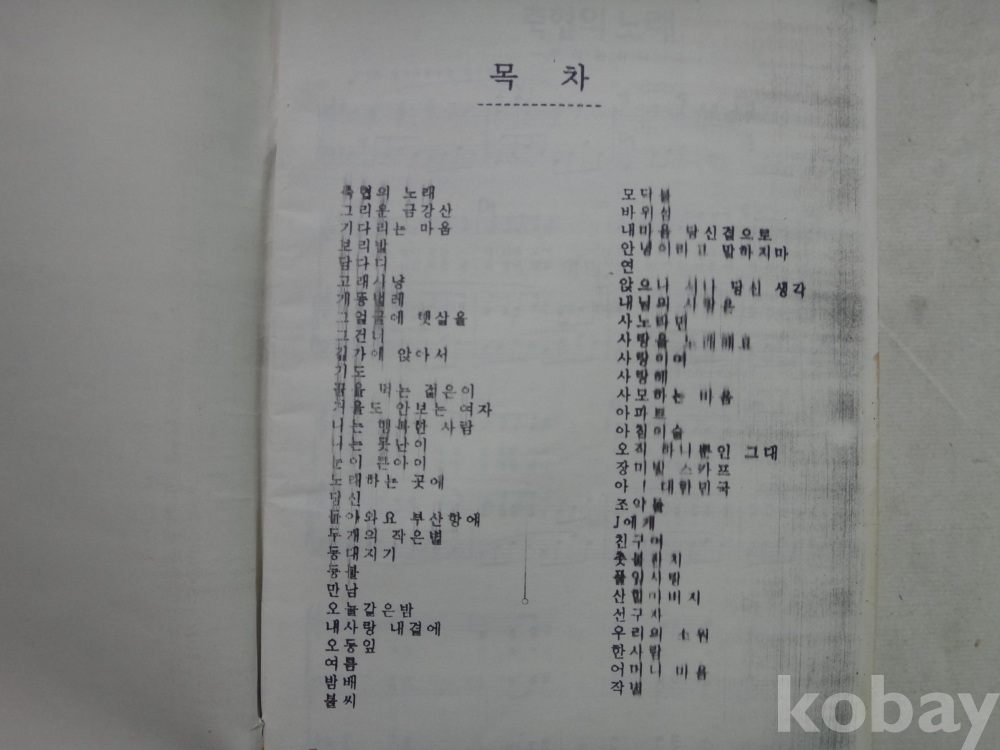 목 차
축협의 노래
그리운 금강산
기다리는 마음
보리밭
담다디
고래사냥
개똥벌레
그얼굴에 햇살을
그건너
길가에 앉아서
기도
꿈을 먹는 젊은이
거울도 안보는 여자
나는 행복한 사람
나는 못난이
눈이 큰아이
노래하는 곳에
당신
돌아와요 부산항에
두개의 작은별
등대지기
등불
만남
오늘같은밤
내사랑 내곁에
오동잎
여름
밤배
불씨
모닥불
바위섬
내마음 당신곁으로
안녕이라고 말하지마
연
앉으나 서나 당신 생각
내님의 사랑은
사노라면
사랑을 노래해요
사랑이여
사랑해
사모하는 마음
아파트
아침이슬
오직 하나뿐인 그대
장미빛 스카프
아! 대한민국
조약돌
J에게
친구여
촛불잔치
풀잎사랑
산할아버지
선구자
우리의 소원
한사람
어머니 마음
작별
kobay